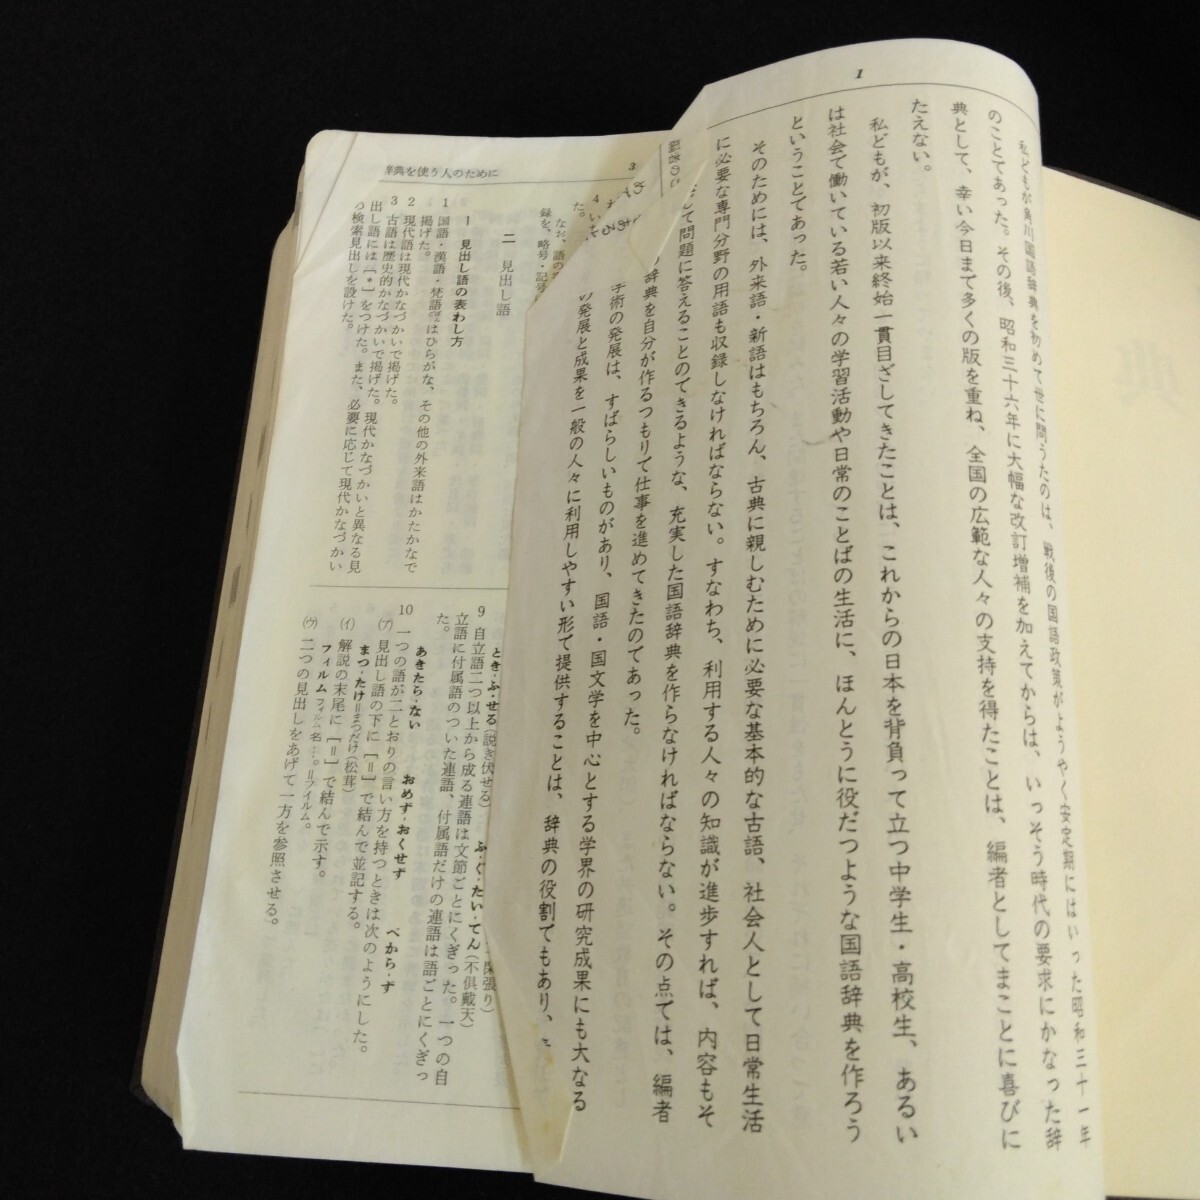 1
私どもが角川国語辞典を初めて世に問うたのは、戦後の国語政策がようやく安定期にはいった昭和三十一年
のことであった。その後、昭和三十六年に大幅な改訂増補を加えてからは、いっそう時代の要求にかなった辞
典として、幸い今日まで多くの版を重ね、全国の広範な人々の支持を得たことは、編者としてまことに喜びに
たえない。
私どもが、初版以来終始一貫目ざしてきたことは、これからの日本を背負って立つ中学生・高校生、あるい
は社会で働いている若い人々の学習活動や日常のことばの生活に、ほんとうに役だつような国語辞典を作ろう
ということであった。
そのためには、外来語・新語はもちろん、古典に親しむために必要な基本的な古語、社会人として日常生活
に必要な専門分野の用語も収録しなければならない。すなわち、利用する人々の知識が進歩すれば、内容もそ
して問題に答えることのできるような、充実した国語辞典を作らなければならない。その点では、編者
辞典を自分が作るつもりで仕事を進めてきたのであった。
学術の発展は、すばらしいものがあり、国語・国文学を中心とする学界の研究成果にも大なる
の発展と成果を一般の人々に利用しやすい形で提供することは、辞典の役割でもあり、
辞典を使う人のために
3
なお、語の
録を、略号・記号
二 見出し語
1 見出し語の表わし方
1 国語・漢語・梵語はひらがな、その他の外来語はかたかなで
掲げた。
2 現代語は現代かなづかいで掲げた。
3 古語は歴史的かなづかいで掲げた。現代かなづかいと異なる見
出し語には[*]をつけた。また、必要に応じて現代かなづかい
の検索見出しを設けた。
張り)
とき・ふ・せる(説き伏せる) ふ・ぐ・たい・てん(不倶戴天)
9 自立語二つ以上から成る連語は文節ごとにくぎった。一つの自
立語に付属語のついた連語、付属語だけの連語は語ごとにくぎっ
た。
あきたら・ない おめず・おくせず べから・ず
10 一つの語が二とおりの言い方を持つときは次のようにした。
(ア) 見出し語の下に[＝]で結んで並記する。
まつ・たけ＝まつだけ(松茸)
(イ) 解説の末尾に[＝]で結んで示す。
フィルム フィルム 名…。＝フイルム。
(ウ) 二つの見出しをあげて一方を参照させる。